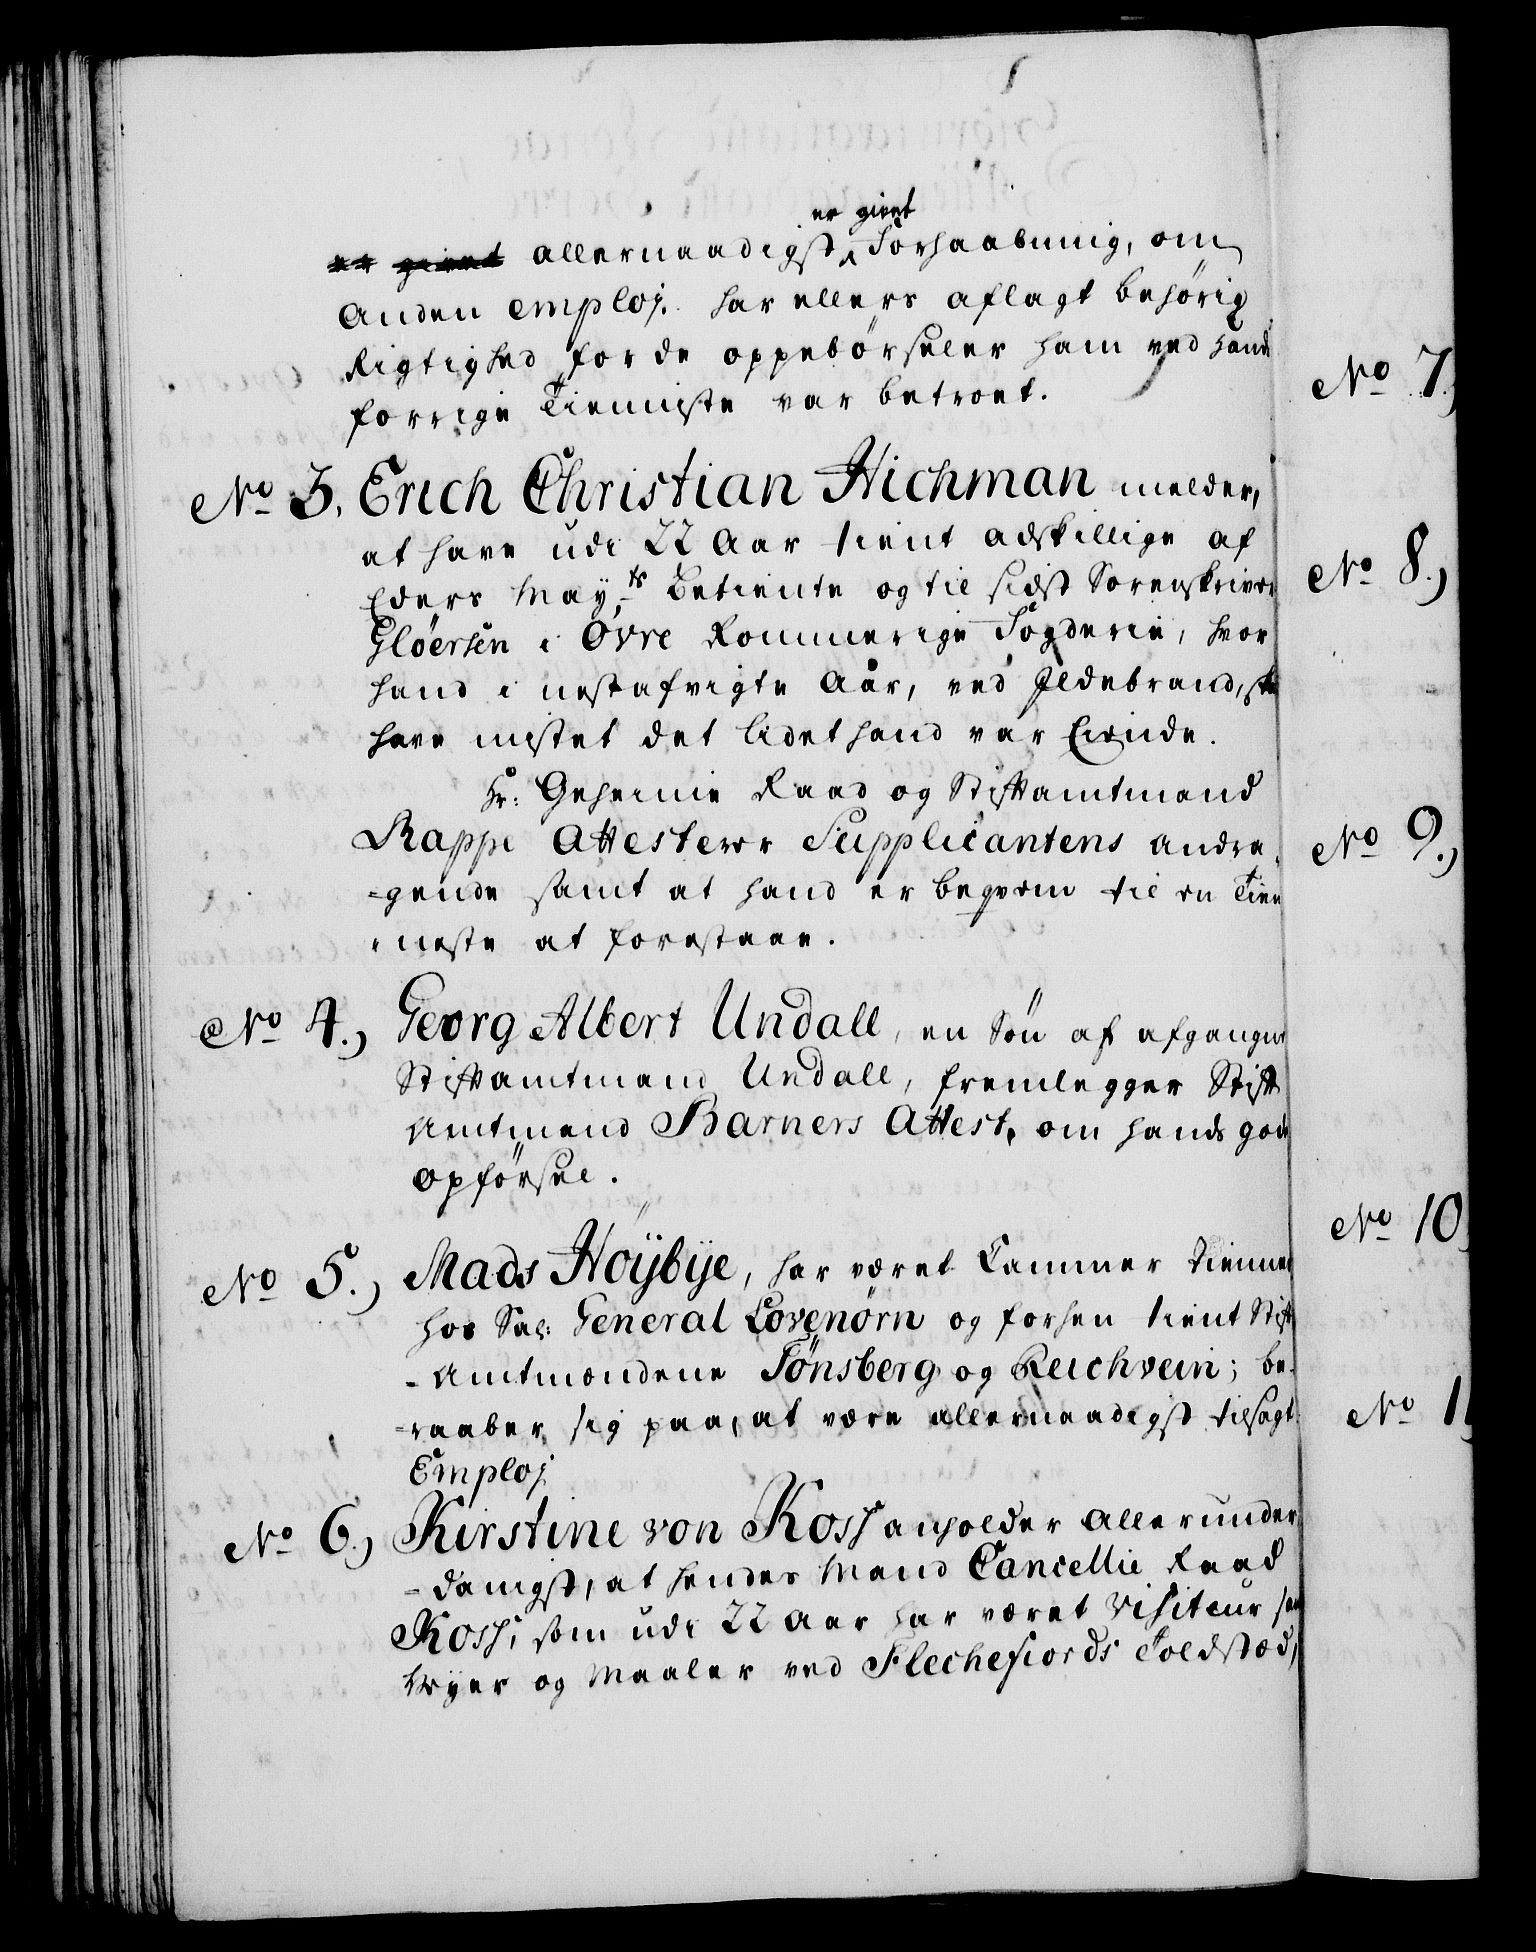 er givet
er givet allernaadigst Forhaabning, om
Anden emploj. har ellers aflagt behørig
Rigtighed for de oppebörseler ham ved hans
forrige Tienniste var betroet.
No 3. Erich Christian Hichman melder,
at have udi 22 Aar tient adskillige af
Eders May.ts Betiente og til sidst Sorenskriver
Glöersen i Övre Rommerige Fogderie, hvor
hand i nestafvigte Aar, ved Ildebrand, skal
have mistet det lidet hand var Eiende.
Hr: Geheime Raad og Stiftamtmand
Rappe Attesterer Supplicantens andra-
-gende samt at hand er beqvem til en Tien
-neste at forestaae.
No 4.) Georg Albert Undall, en Sön af afgangne
Stiftamtmand Undall, fremlegger Stift
Amtmand Barners Attest, om hands gode
opförsel.
No 5.) Mads Höijbije, har været Cammer tienner
hos Sal: General Lövenörn og forhen tient Stift
-Amtmændene Tönsberg og Reichvein; be-
-raaber sig paa, at være allernaadigst tilsagt
Emploj
No 6.) Kirstine von Koss anholder Allerunder
-danigst, at hendes Mand Cancellie Raad
Koss, som udi 22 Aar har været Visiteur samt
Veyer og Maaler ved Flechefiords Toldstæd,
No 7.)
No 8.)
No 9.)
No 10
No 1